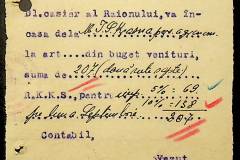 Dl.casier al Raionului, va în-
casa dela M.T.S. Krasna
la art....din buget venituri,
suma de 207 (două sute șapte)
R.K.K.S., pentru imp. 5% : 69
10% - 138
pe luna Septembrie 207
Contabil,
Vazut